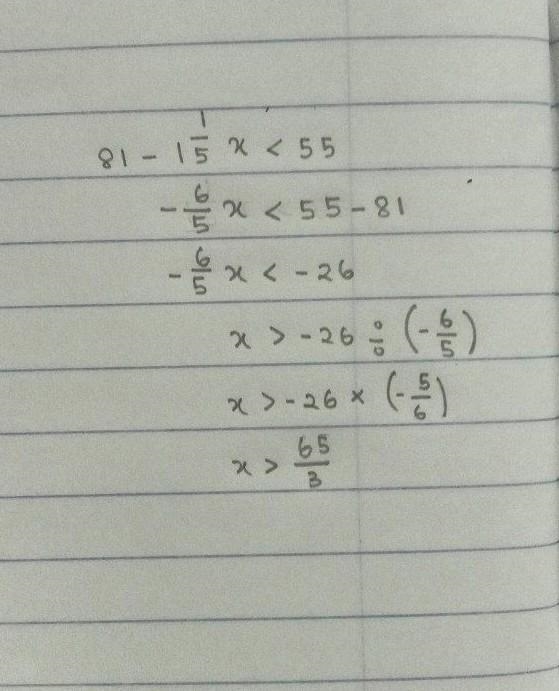 81 - 1 1/5 x < 55
- 6/5 x < 55 - 81
- 6/5 x < - 26
x > - 26 ÷ (- 6/5)
x > - 26 × (- 5/6)
x > 65/3